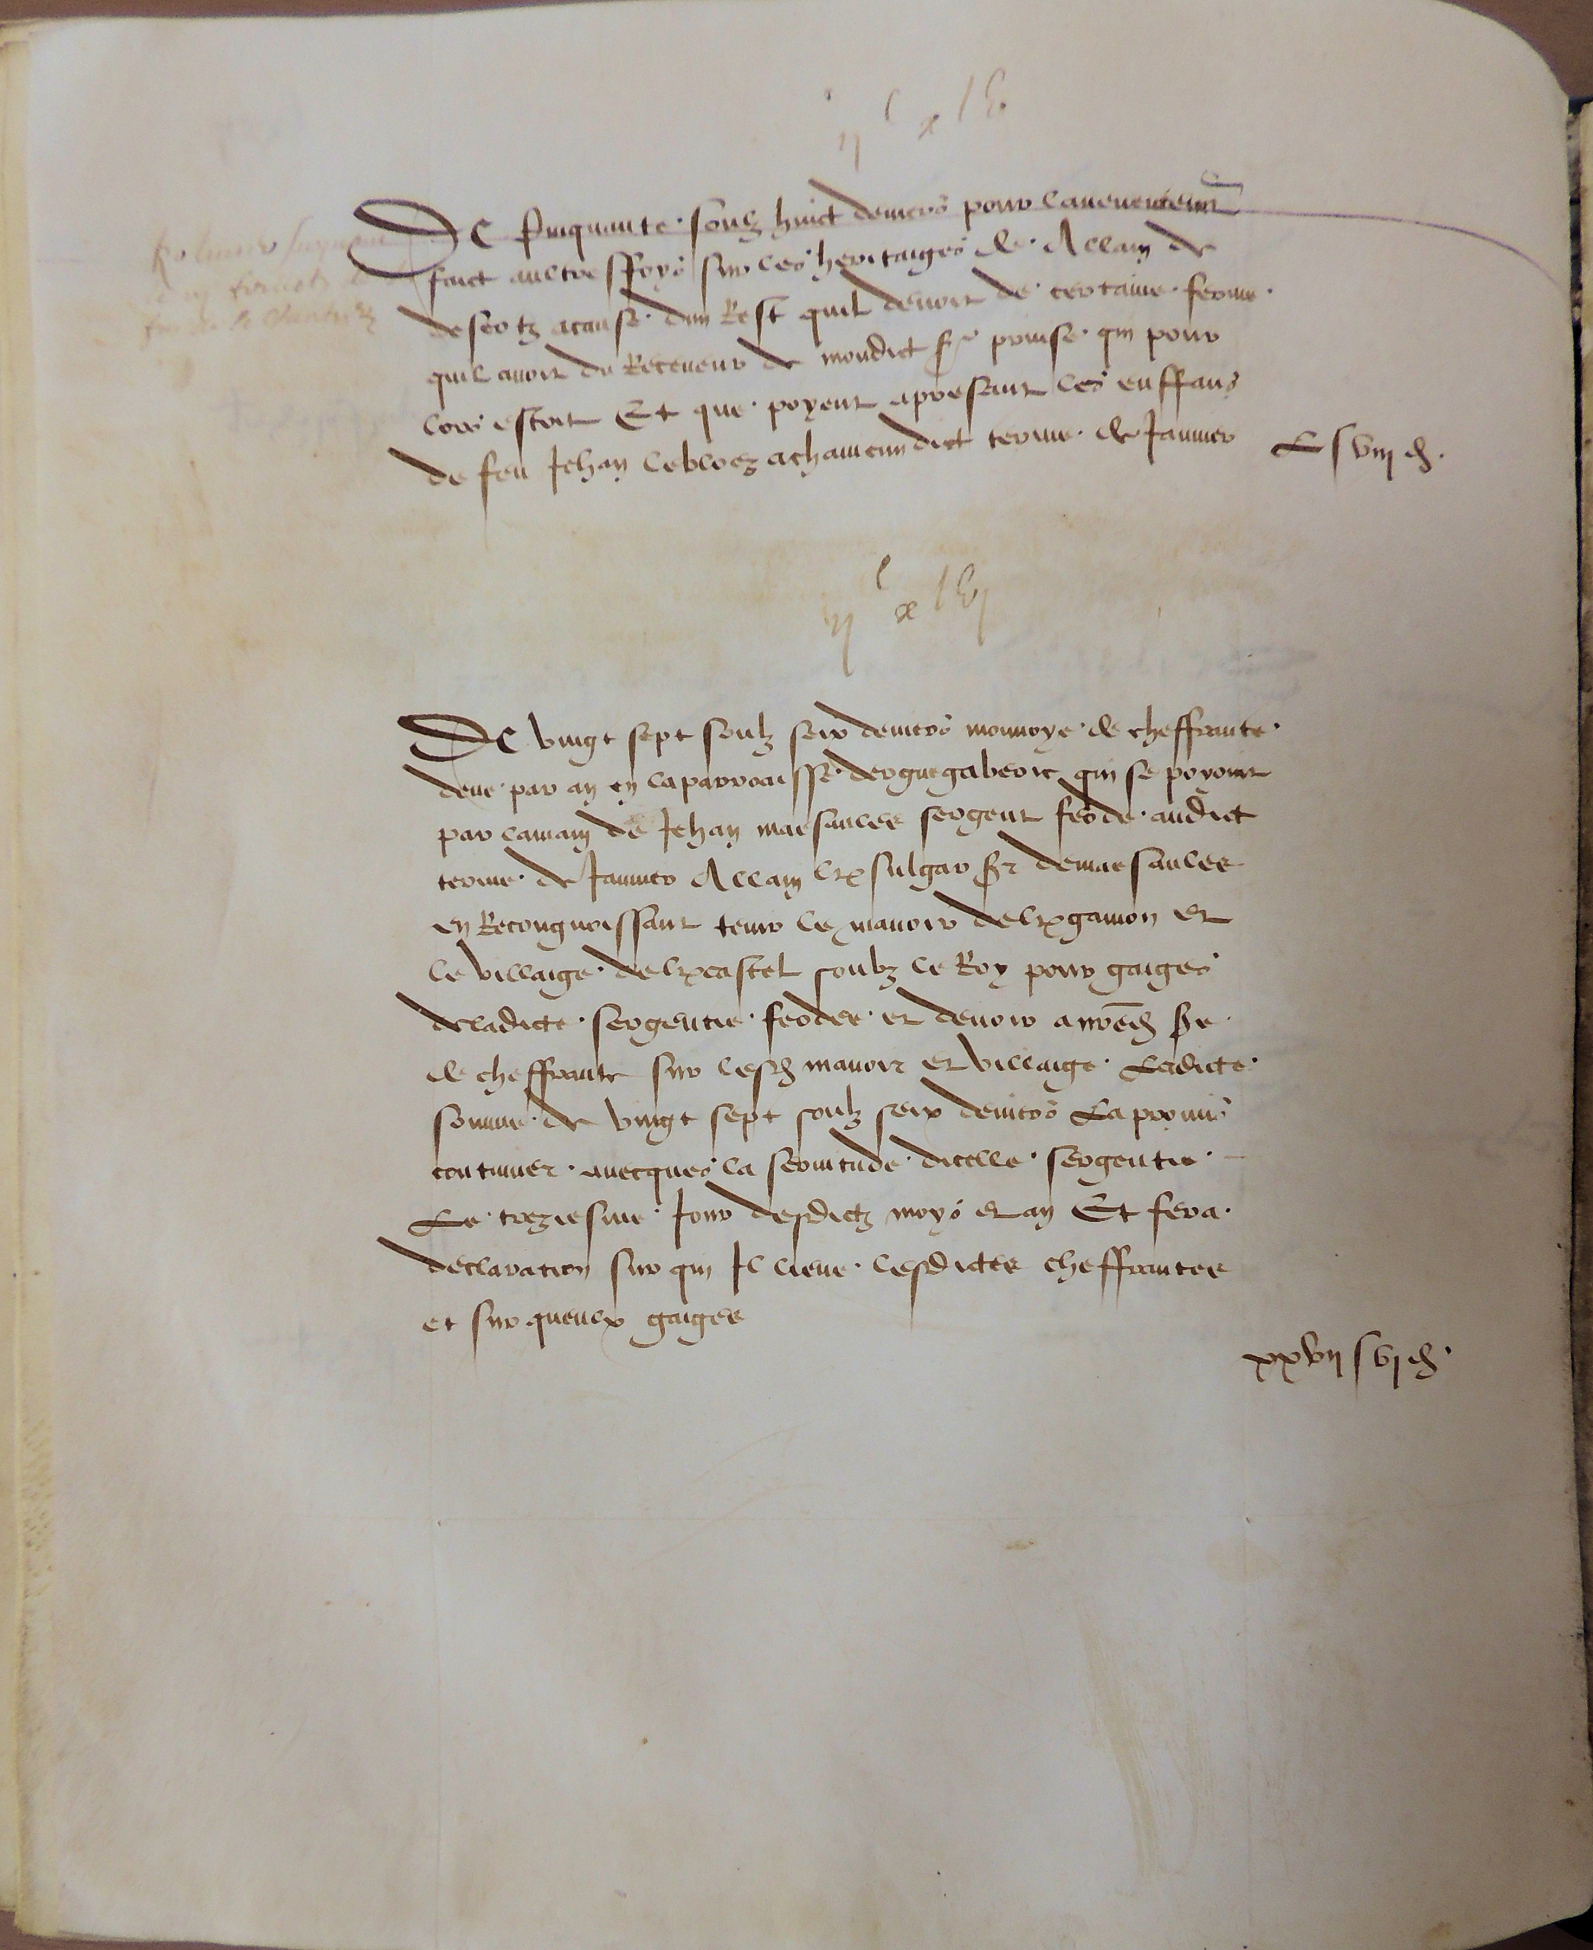 ij c xlv
De cinquante soulz huict deniers pour lauenentement
faict aultreffoys sur les heritaiges de Allain de
desertz acause dun Rest quil deuoit de certaine ferme
quil auoit du Receueur de mondict sr prinse qui pour
lors estoit Et que poyent apresant les enffans
de feu Jehan lebloez achaincun dict terme de Januier
L s viij d.
ij c xlvj
De vingt sept soulz seix deniers monnoye de cheffrante
deue par an en la parroaisse derguegaberic qui se poyoint
par lamain de Jehan marsaulee sergent feodé audict
terme de Januier Allain krsulgar sr demarsaulee
en Recongnoissant tenir le manoir dekrgamon et
le villaige dekrcastel soubz le Roy pour gaiges
de ladicte sergentie feodee et deuoir
de cheffrante sur lesd manoir et villaige Ladicte
somme de vingt sept soulz seix deniers La promis
continuer auecques la seruitude dicelle sergentie
Le treziesme Jour desdictz moys et an Et fera
declaration sur qui Il lieue lesdictes cheffrantes
et sur queulx gaiges
xxvij s vj d.